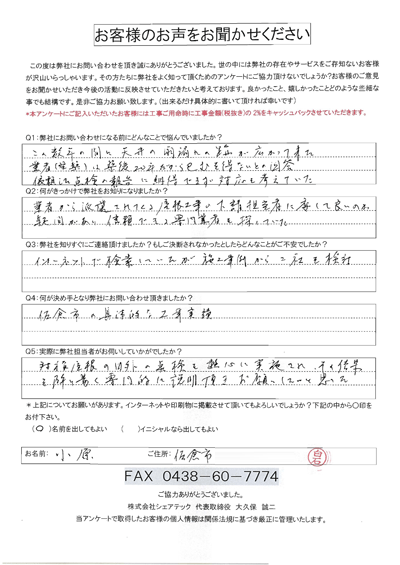 お客様のお声をお聞かせください
この度は弊社にお問い合わせを頂き誠にありがとうございました。世の中には弊社の存在やサービスをご存知ないお客様
が沢山いらっしゃいます。その方たちに弊社をよく知って頂くためのアンケートにご協力頂けないでしょうか？お客様のご意見
をお聞かせいただき今後の活動に反映させていただきたいと考えております。良かったこと、嬉しかったことどのような些細な
事でも結構です。是非ご協力お願い致します。（出来るだけ具体的に書いて頂ければ幸いです）
*本アンケートにご記入いただいたお客様には工事ご用命時に工事金額（税抜き）の2%をキャッシュバックさせていただきます。
Q1：弊社にお問い合わせになる前にどんなことで悩んでいましたか？
この数年の間に天井の雨漏れの が広がって来た
業者 は築後20年だから 回答
点検の報告に納得できず対応を考えていた
Q2：何がきっかけで弊社をお知りになりましたか？
業者から派遣されてくる屋根工事の下請担当者に 良いのか
疑問があり信頼できる専門業者を探していた
Q3：弊社を知りすぐにご連絡頂けましたか？もしご決断されなかったとしたらどんなことがご不安でしたか？
インターネットで検索していたが施工事例から二社を検討
Q4：何が決め手となり弊社にお問い合わせ頂きましたか？
佐倉市の具体的な工事実績
Q5：実際に弊社担当者がお伺いしていかがでしたか？
対象屋根の以外の点検も熱心に実施され、その結果
専門的に説明頂きお願いしたいと思った
*上記についてお願いがあります。インターネットや印刷物に掲載させて頂いてもよろしいでしょうか？下記の中から〇印を
お付下さい。
（〇）名前を出してもよい （ ）イニシャルなら出してもよい
お名前： 小原 ご住所： 佐倉市 白石
FAX 0438-60-7774
ご協力ありがとうございました。
株式会社シェアテック 代表取締役 大久保 誠二
当アンケートで取得したお客様の個人情報は関係法規に基づき厳正に管理いたします。